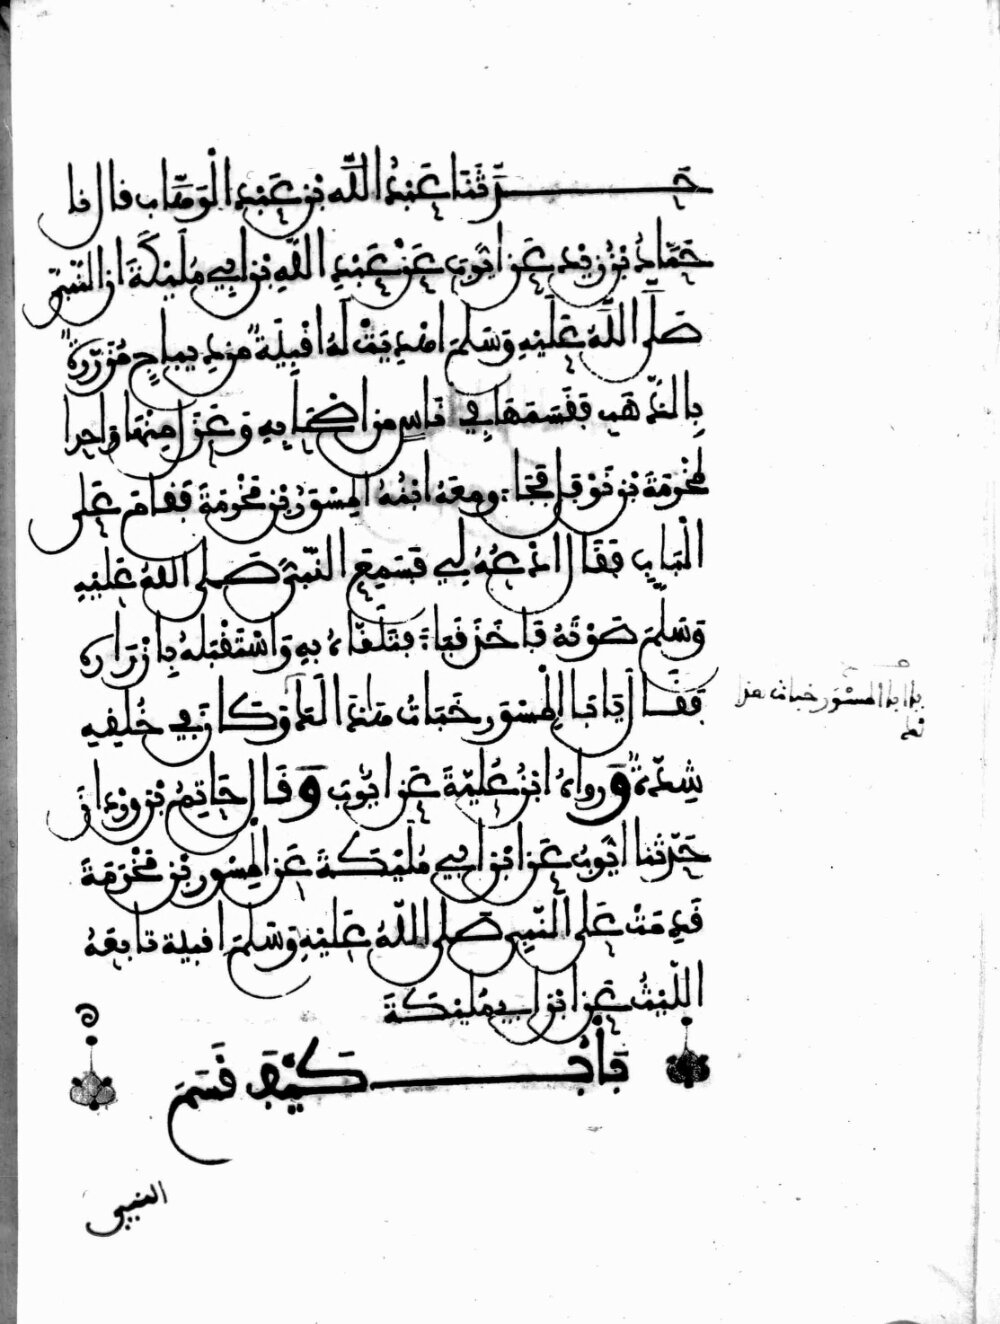 حَدَّثَنَا عَبْدُ اللَّهِ بْنُ عَبْدِ الْوَهَّابِ قال نا
حَمَّادُ بْنُ زيْد عَن أَيُّوبَ عَنْ عَبْدِ اللَّهِ بْنِ أَبِي مُلَيْكَةَ أن النَّبِيَّ
صَلَّى اللَّهُ عَلَيْهِ وَسَلَّمَ اهْدِيَتْ لَهُ أَقْبِيَةٌ مِن دِيبَاجٍ مُزَرَّرَةٌ
بِالذَّهَبِ فَقَسَمَهَا فِي نَاسٍ مِن أَصْحَابِهِ وَعَزَلَ مِنْهَا وَاحِدا
لِمَخْرَمَةَ بْنِ نَوْفَل فَجَاءَ وَمَعَهُ ابْنُهُ الْمِسْوَرُ بْنُ مَخْرَمَةَ فَقَامَ عَلَى
الْبَابِ فَقَالَ ادْعُهُ لِي فَسَمِعَ النَّبِيُّ صَلَّى اللَّهُ عَلَيْهِ
وَسَلَّمَ صَوْتَهُ فَأَخَذَ قَبَاءً فَتَلَقَّاهُ بِهِ وَاسْتَقْبَلَهُ بِأَزْرَارِه
فَقَالَ يَا أَبَا الْمِسْوَرِ خَبَأْتُ هَذَا لَكَ وَكَانَ فِي خُلُقِهِ
شِدَّةٌ وَرواهُ ابْنُ عُلَيَّةَ عَن أَيُّوبَ وَقَالَ حَاتِمُ بْنُ وَرْدَانَ
حَدَّثَنا أَيُّوبُ عَن ابْنِ أَبِي مُلَيْكَةَ عَن الْمِسْوَرِ بْنِ مَخْرَمَةَ
قَدِمَتْ عَلَى النَّبِيِّ صَلَّى اللَّهُ عَلَيْهِ وَسَلَّمَ أقبية تابَعَهُ
اللَّيْثُ عَنِ ابْنِ أَبِي مُلَيْكَةَ
بَابُ كَيْفَ قَسَمَ
النبي
المسْوَر خبات هذا